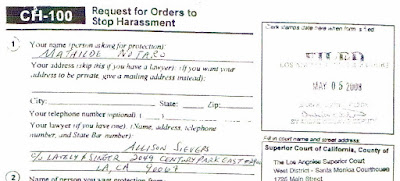 CH-100
Request for Orders to
Stop Harassment
Clerk stamps date here when form is filed.
1 Your name (person asking for protection):
MATHILDE NOTARO
Your address (skip this if you have a lawyer): (If you want your
address to be private, give a mailing address instead):
City: State: Zip:
Your telephone number (optional): ( )
Your lawyer (if you have one): (Name, address, telephone
number, and State Bar number):
ALLISON SIEVERS
c/o LAVELY & SINGER 2049 CENTURY PARK EAST
LA, CA 90067
2 Name of person you want protection from
MAY 05 2008
Fill in court name and street address:
Superior Court of California, County of
The Los Angeles Superior Court
West District - Santa Monica Courthouse
1725 Main Street